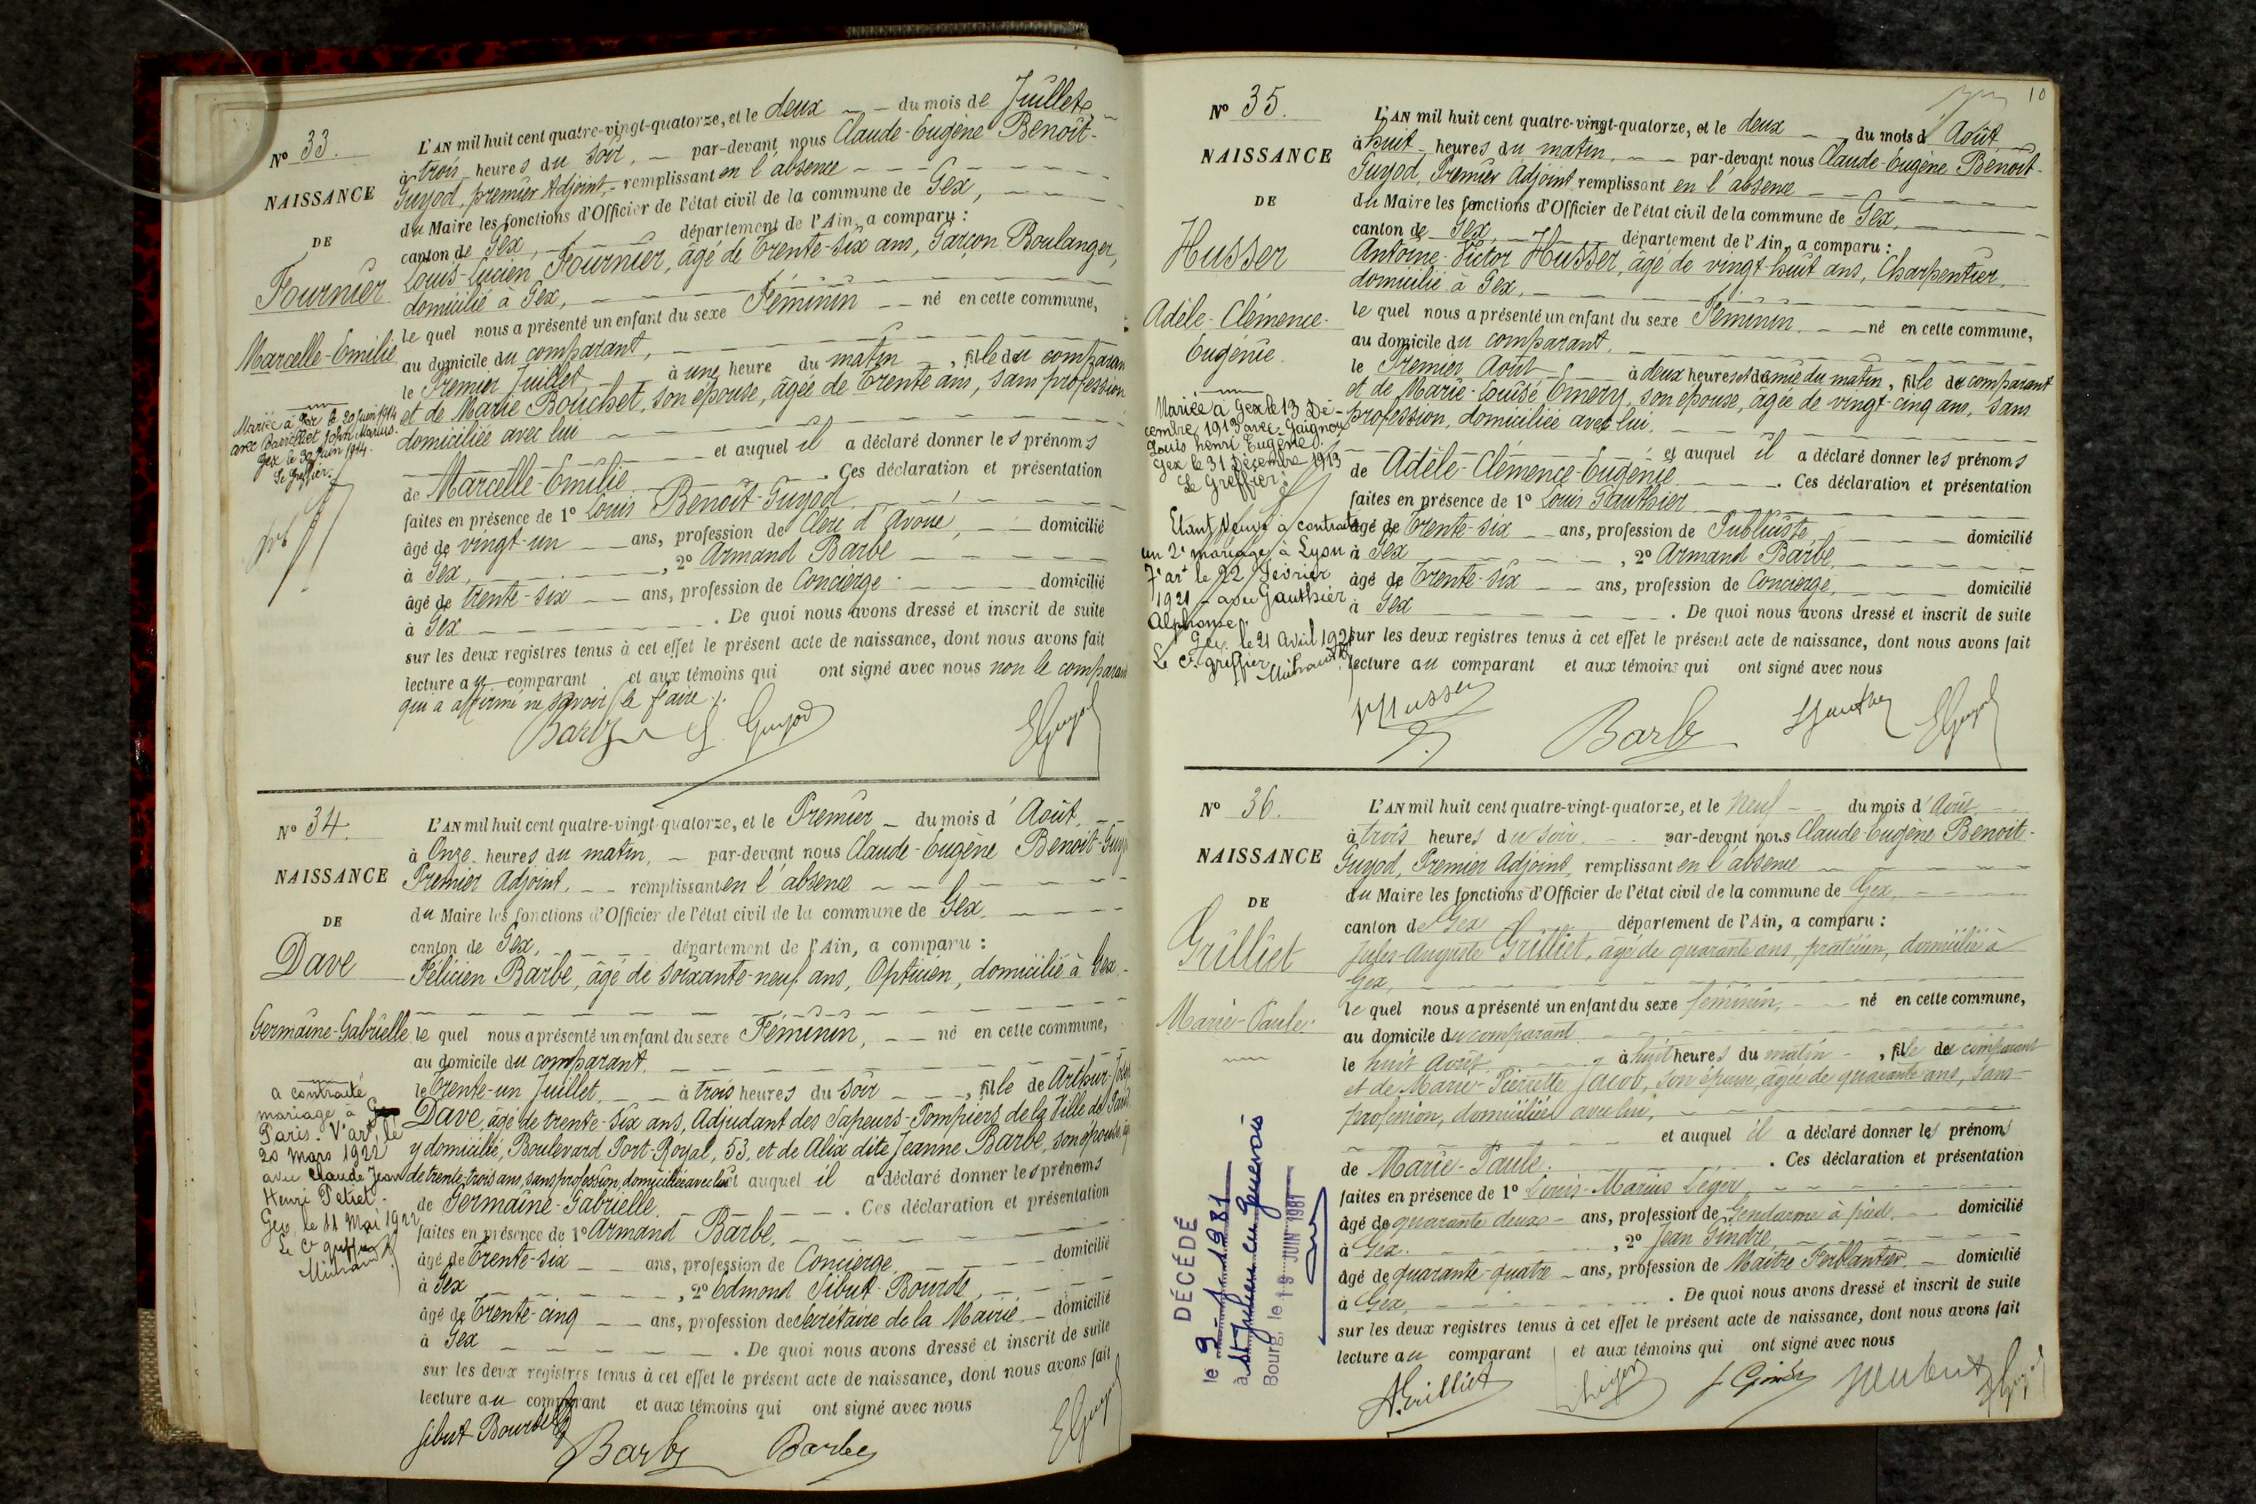 N° 33.
NAISSANCE
DE
Fournier
Marcelle-Emilie
Mariée à Gex le 20 Juin 1914
avec John Marius.
Gex le 30 Juin 1914.
Le Greffier.
L'AN mil huit cent quatre-vingt-quatorze, et le deux du mois de Juillet
à trois heures du soir, par-devant nous Claude-Eugène Benoît-
Guyod, premier Adjoint, remplissant en l'absence
du Maire les fonctions d'Officier de l'état civil de la commune de Gex,
canton de Gex, département de l'Ain, a comparu :
Louis-Lucien Fournier, âgé de trente-six ans, Garçon Boulanger,
domicilié à Gex,
le quel nous a présenté un enfant du sexe Féminin né en cette commune,
au domicile du comparant,
le Premier Juillet à une heure du matin, fille du comparan
et de Marie Bouchet, son épouse, âgée de trente ans, sans profession
domiciliée avec lui
et auquel il a déclaré donner les prénoms
de Marcelle-Emilie. Ces déclaration et présentation
faites en présence de 1° Louis Benoît-Guyod
âgé de vingt-un ans, profession de Clerc d'Avoué, domicilié
à Gex, 2° Armand Barbe
âgé de trente-six ans, profession de Concierge domicilié
à Gex. De quoi nous avons dressé et inscrit de suite
sur les deux registres tenus à cet effet le présent acte de naissance, dont nous avons fait
lecture au comparant et aux témoins qui ont signé avec nous non le comparan
qui a affirmé ne savoir le faire.
Barbe L. Guyod EGuyod
N° 34.
NAISSANCE
DE
Dave
Germaine-Gabrielle
a contracté
mariage à
Paris. V°art le
20 Mars 1922
avec Claude Jean
Henri Petiet.
Gex, le 11 Mai 1922
Le Cs greffier
L'AN mil huit cent quatre-vingt-quatorze, et le Premier du mois d'Août
à Onze heures du matin, par-devant nous Claude-Eugène Benoît-Guy
Premier Adjoint, remplissant en l'absence
du Maire les fonctions d'Officier de l'état civil de la commune de Gex
canton de Gex, département de l'Ain, a comparu :
Félicien Barbe, âgé de soixante-neuf ans, Opticien, domicilié à Gex
le quel nous a présenté un enfant du sexe Féminin, né en cette commune,
au domicile du comparant.
le Trente-un Juillet, à trois heures du soir, fille de Arthur-
Dave, âgé de trente-six ans, Adjudant des Sapeurs-Pompiers de la Ville de Paris
y domicilié, Boulevard Port-Royal, 53, et de Alix dite Jeanne Barbe, son épouse,
de trente-trois ans, sans profession, domiciliée avec lui et auquel il a déclaré donner les prénoms
de Germaine-Gabrielle. Ces déclaration et présentation
faites en présence de 1° Armand Barbe,
âgé de Trente-six ans, profession de Concierge domicilié
à Gex, 2° Edmond Sibut-Bourde,
âgé de Trente-cinq ans, profession de Secrétaire de la Mairie domicilié
à Gex. De quoi nous avons dressé et inscrit de suite
sur les deux registres tenus à cet effet le présent acte de naissance, dont nous avons fait
lecture au comparant et aux témoins qui ont signé avec nous
Sibut Bourde Barbe Barbe EGuyod
10
N° 35.
NAISSANCE
DE
Husser
Adèle-Clémence-
Eugénie
Mariée à Gex le 13 Dé-
cembre 1913 avec
Louis henri Eugène.
Gex le 31 Décembre 1913
Le Greffier.
Etant Veuve à contracté
un 2e mariage à Lyon
7e art le 22 Février
1921 avec Gauthier
Alphonse.
Gex. le 21 Avril 1921
Le Cs greffier
L'AN mil huit cent quatre-vingt-quatorze, et le deux du mois d'Août
à huit heures du matin, par-devant nous Claude-Eugène Benoît-
Guyod, Premier Adjoint remplissant en l'absence
du Maire les fonctions d'Officier de l'état civil de la commune de Gex,
canton de Gex, département de l'Ain, a comparu :
Antoine-Victor Husser, âgé de vingt-huit ans, Charpentier,
domicilié à Gex,
le quel nous a présenté un enfant du sexe Féminin né en cette commune,
au domicile du comparant,
le Premier Août à deux heures et demie du matin, fille du comparant
et de Marie-Louise Emery, son épouse, âgée de vingt-cinq ans, sans
profession, domiciliée avec lui,
et auquel il a déclaré donner les prénoms
de Adèle-Clémence-Eugénie. Ces déclaration et présentation
faites en présence de 1° Louis Gauthier
âgé de Trente-six ans, profession de Publiciste domicilié
à Gex, 2° Armand Barbe,
âgé de Trente-six ans, profession de Concierge, domicilié
à Gex. De quoi nous avons dressé et inscrit de suite
sur les deux registres tenus à cet effet le présent acte de naissance, dont nous avons fait
lecture au comparant et aux témoins qui ont signé avec nous
Husser Barbe LGauthier EGuyod
N° 36.
NAISSANCE
DE
Grilliet
Marie-Paule
DÉCÉDÉ
le 9-1-1981
à St Julien en Genevois
Bourg, le 19 JUIN 1981
L'AN mil huit cent quatre-vingt-quatorze, et le neuf du mois d'Août
à trois heures du soir, par-devant nous Claude-Eugène Benoît-
Guyod, Premier Adjoint, remplissant en l'absence
du Maire les fonctions d'Officier de l'état civil de la commune de Gex,
canton de Gex département de l'Ain, a comparu :
Jules-Auguste Grilliet, âgé de quarante ans, praticien, domicilié à
Gex,
le quel nous a présenté un enfant du sexe féminin, né en cette commune,
au domicile du comparant
le huit Août, à huit heures du matin, fille du comparant
et de Marie-Pierrette Jacob, son épouse, âgée de quarante ans, sans
profession, domiciliée avec lui,
et auquel il a déclaré donner les prénoms
de Marie-Paule. Ces déclaration et présentation
faites en présence de 1° Louis-Marius Léger
âgé de quarante deux ans, profession de Gendarme à pied domicilié
à Gex, 2° Jean Gindre
âgé de quarante-quatre ans, profession de Maître Ferblantier domicilié
à Gex. De quoi nous avons dressé et inscrit de suite
sur les deux registres tenus à cet effet le présent acte de naissance, dont nous avons fait
lecture au comparant et aux témoins qui ont signé avec nous
A. Grilliet Léger J Gindre